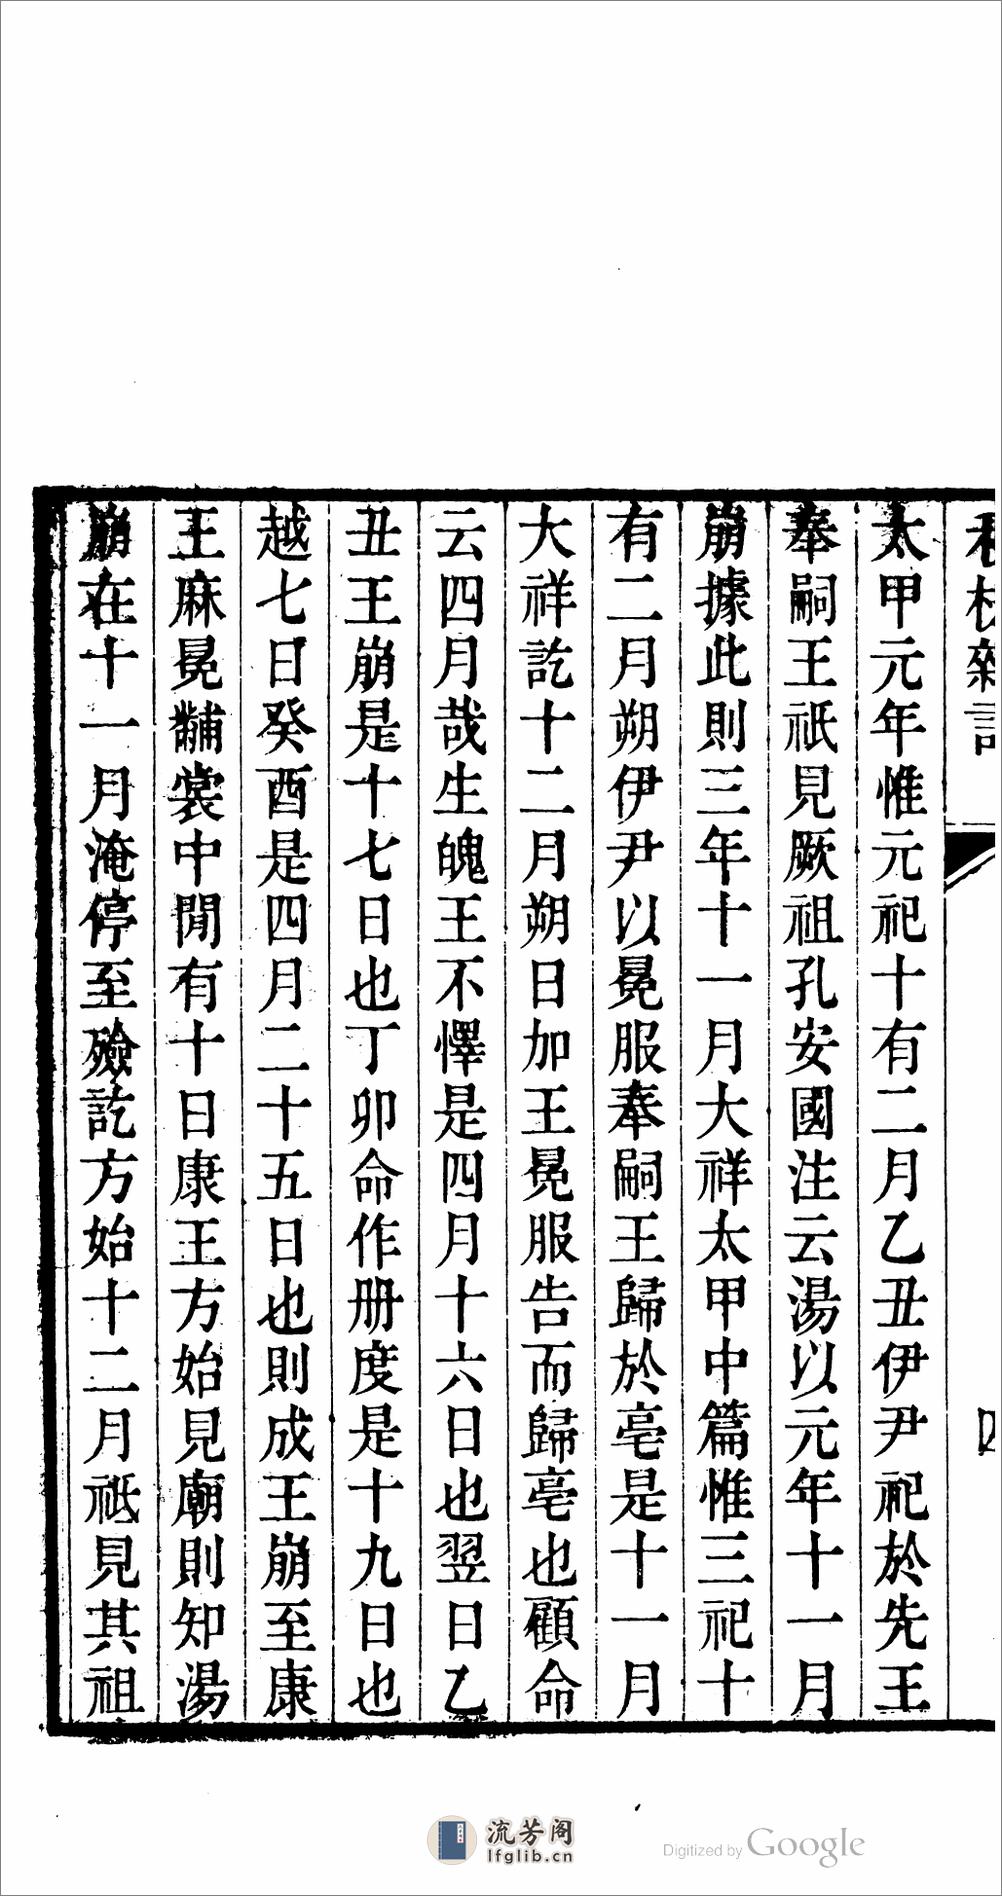 雜記
太甲元年惟元祀十有二月乙丑伊尹祀於先王
奉嗣王祇見厥祖孔安國注云湯以元年十一月
崩據此則三年十一月大祥太甲中篇惟三祀十
有二月朔伊尹以冕服奉嗣王歸於亳是十一月
大祥訖十二月朔日加王冕服告而歸亳也顧命
云四月哉生魄王不懌是四月十六日也翌日乙
丑王崩是十七日也丁卯命作册度是十九日也
越七日癸酉是四月二十五日也則成王崩至康
王麻冕黼裳中閒有十日康王方始見廟則知湯
崩在十一月淹停至殮訖方始十二月祗見其祖
流芳阁
lfglib.cn
Digitized by Google